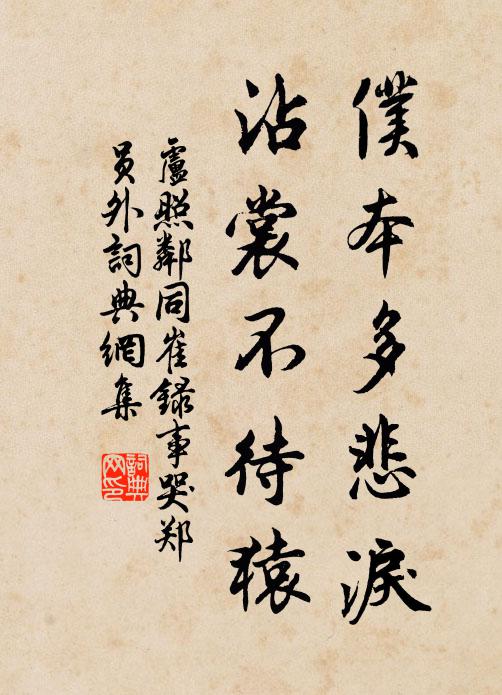 僕本多悲淚
沾裳不待猿
盧照鄰同崔錄事哭郑
員外詞典網集
詞典
网印